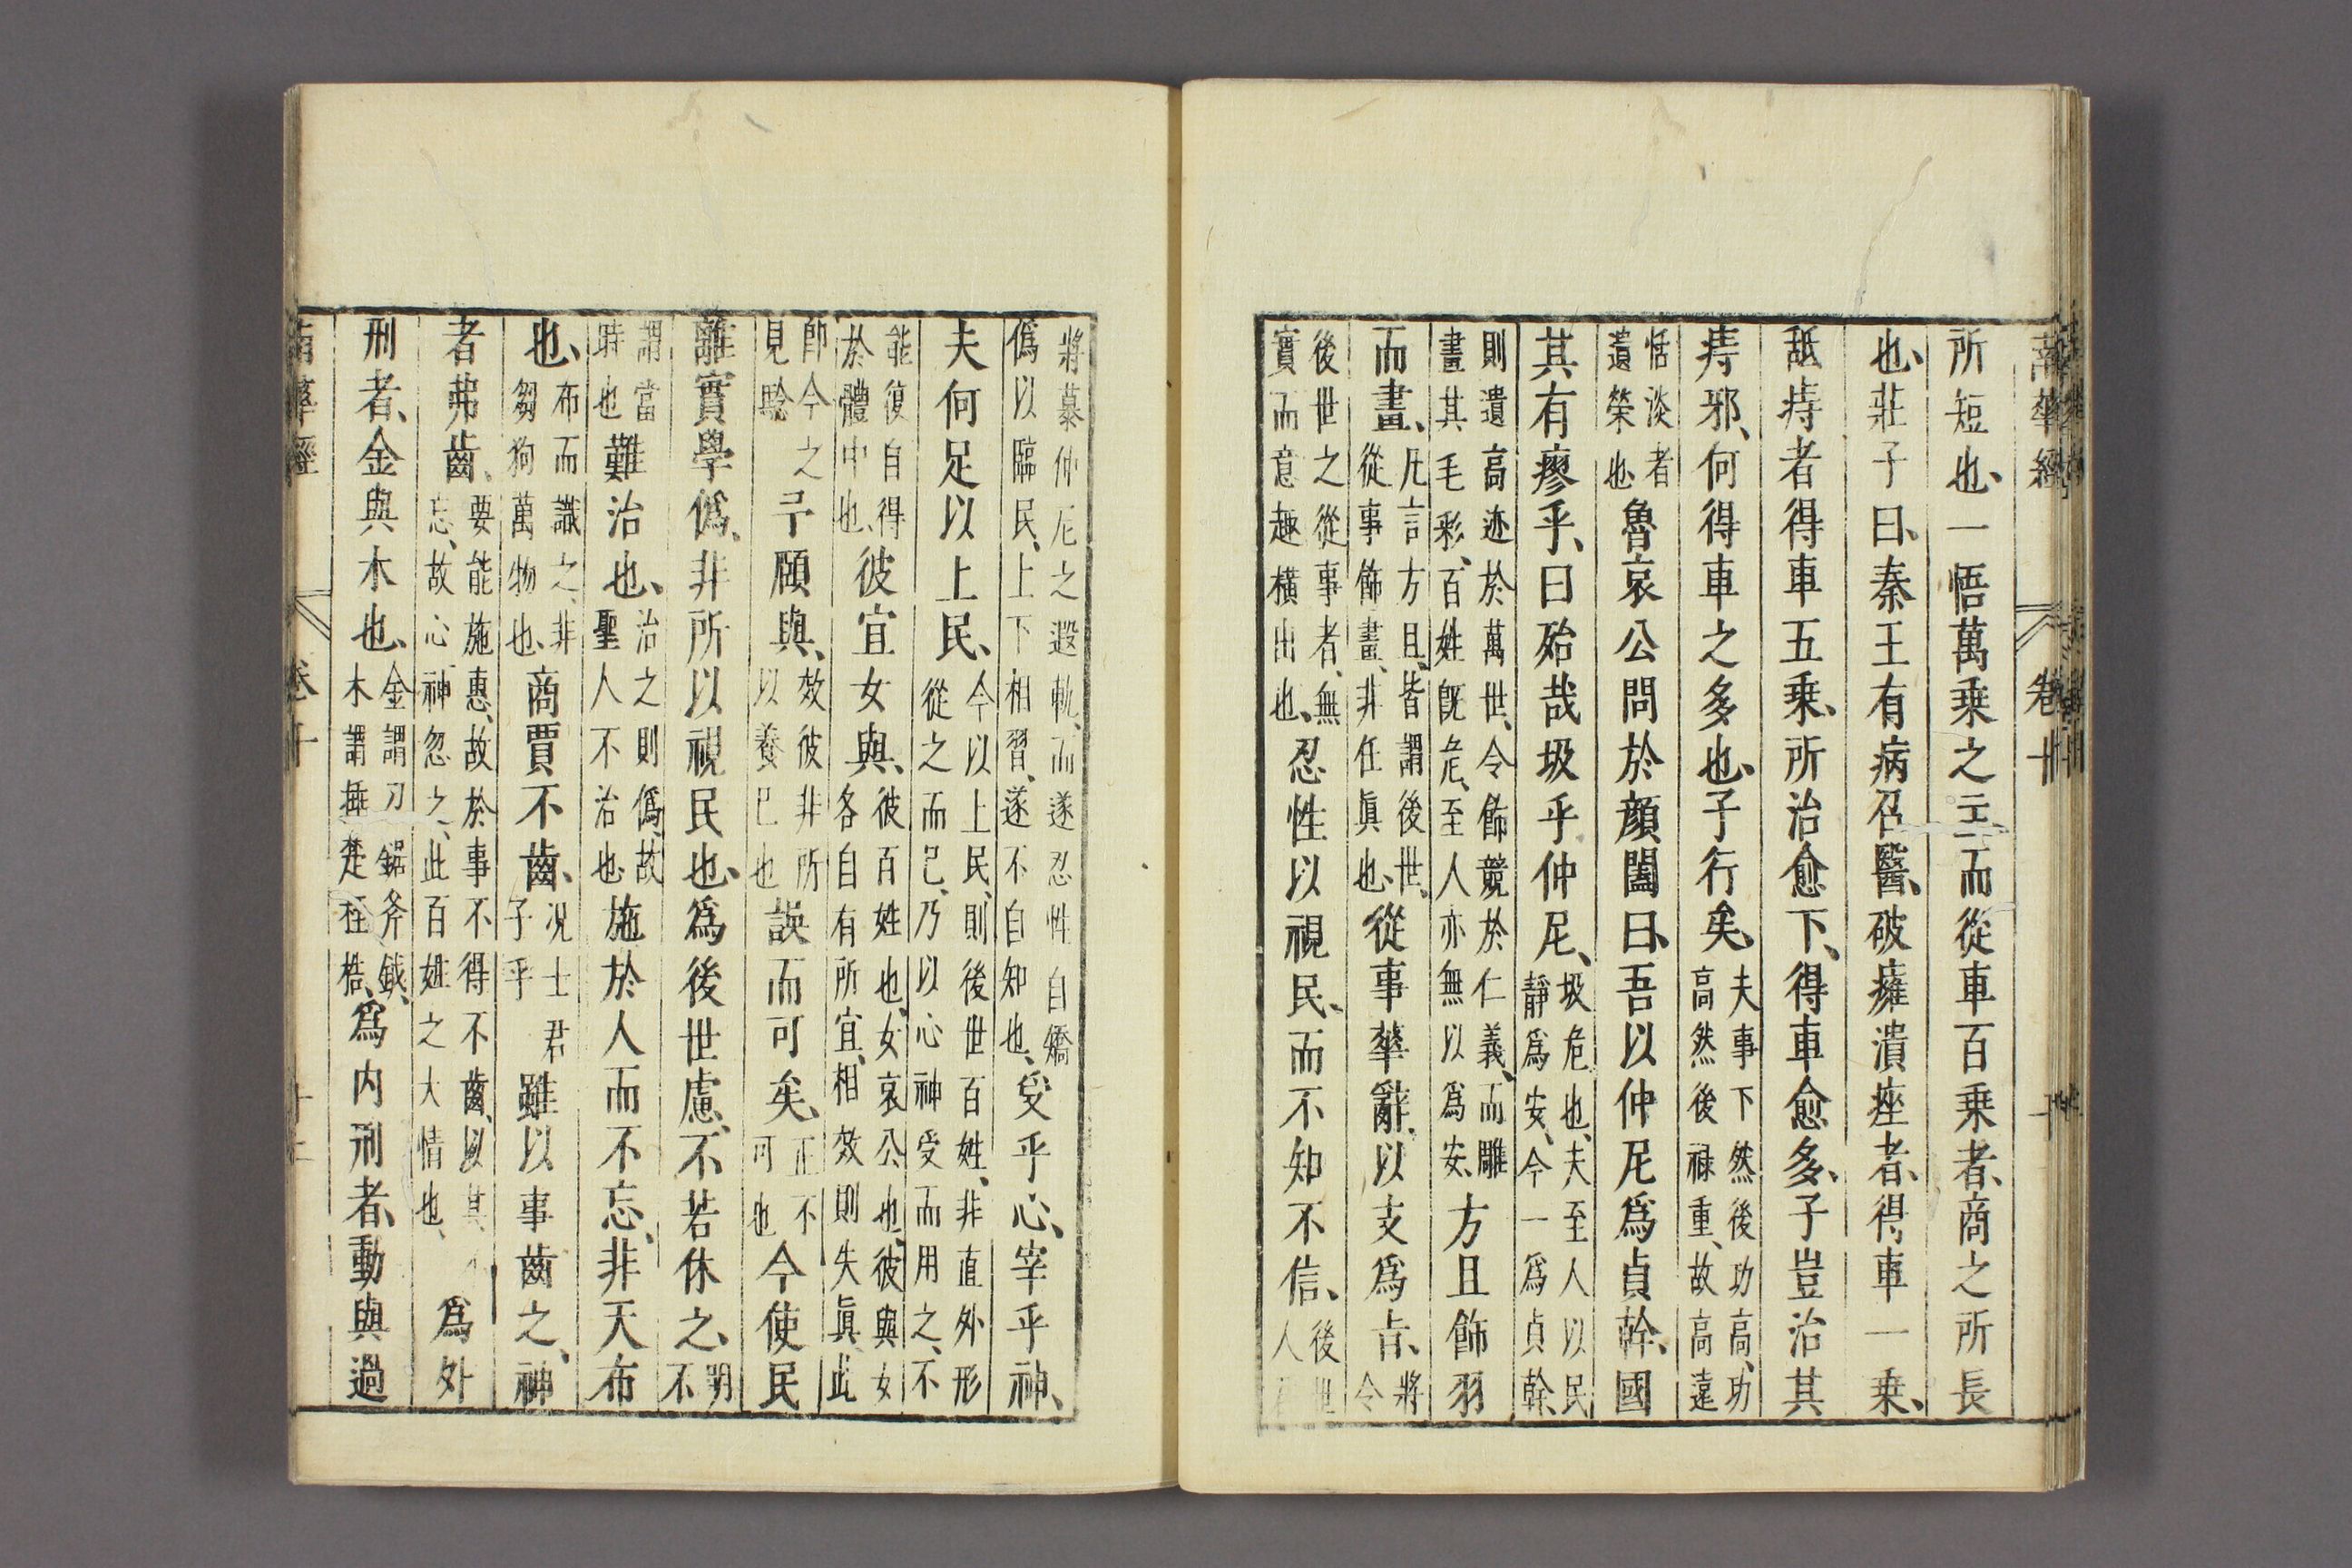 南華經　卷十　十
所短也、一悟萬乗之主而從車百乗者、商之所長
也、莊子曰、秦王有病召醫、破癰潰痤者、得車一乗、
舐痔者得車五乗、所治愈下、得車愈多、子豈治其
痔邪、何得車之多也、子行矣、夫事下然後功高、功高然後禄重、故高遠
恬淡者遺榮也魯哀公問於顏闔曰、吾以仲尼爲貞幹、國
其有瘳乎、曰殆哉圾乎仲尼、圾危也、夫至人以民靜爲安、今一爲貞幹、
則遺高迹於萬世、令飾競於仁義、而雕畫其毛彩、百姓既危、至人亦無以爲安、方且飾羽
而畫、凡言方且、皆謂後世、從事飾畫、非任眞也、從事華辭、以支爲旨、將令
後世之從事者、無實而意趣橫出也、忍性以視民、而不知不信、後世人
將慕仲尼之遐軌、而遂忍性自矯偽以臨民、上下相習、遂不自知也、受乎心、宰乎神、
夫何足以上民、今以上民、則後世百姓、非直外形從之而已、乃以心神受而用之、不
能復自得於體中也、彼宜女與、彼百姓也、女哀公也、彼與女各自有所宜、相效則失眞、此
即今之見驗予頤與、效彼非所以養己也誤而可矣、正不可也今使民
離實學偽、非所以視民也、爲後世慮、不若休之、明不
謂當時也難治也、治之則偽、故聖人不治也施於人而不忘、非天布
也、布而識之、非芻狗萬物也、商賈不齒、况士君子乎雖以事齒之、神
者弗齒、要能施惠、故於事不得不齒、以其忘、故心神忽之、此百姓之大情也、爲外
刑者、金與木也、金謂刀鋸斧鉞、木謂捶楚桎梏、爲内刑者、動與過
南華經　卷十